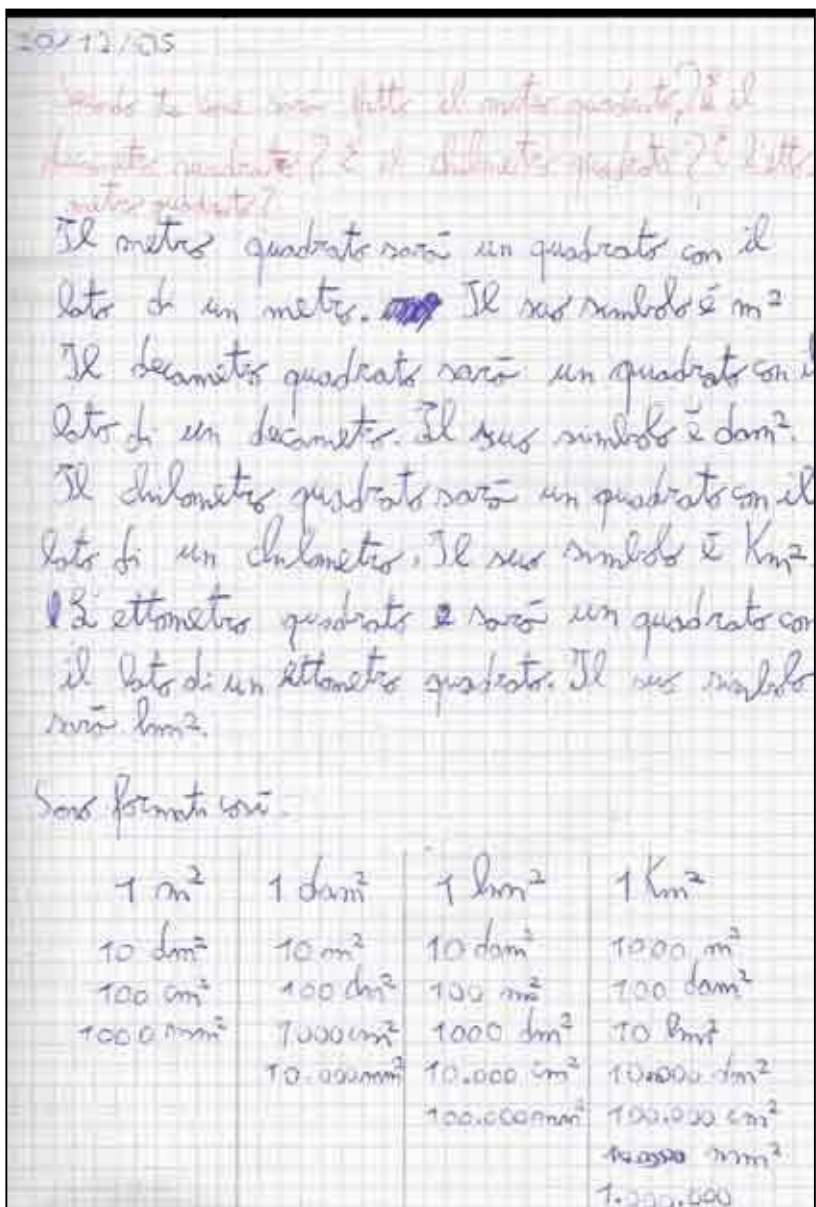 20/12/05
Secondo te come sarà fatto il metro quadrato? E il
decametro quadrato? E il chilometro quadrato? E l'etto
metro quadrato?
Il metro quadrato sarà un quadrato con il
lato di un metro. Il suo simbolo è m²
Il decametro quadrato sarà un quadrato con il
lato di un decametro. Il suo simbolo è dam².
Il chilometro quadrato sarà un quadrato con il
lato di un chilometro. Il suo simbolo è Km²
L'ettometro quadrato sarà un quadrato con
il lato di un ettometro quadrato. Il suo simbolo
sarà hm².
Sono formati così.
1 m² 1 dam² 1 hm² 1 Km²
10 dm² 10 m² 10 dam² 1000 m²
100 cm² 100 dm² 100 m² 100 dam²
1000 mm² 1000 cm² 1000 dm² 10 hm²
10.000 mm² 10.000 cm² 10.000 dm²
100.000 mm² 100.000 cm²
mm²
1.000.000